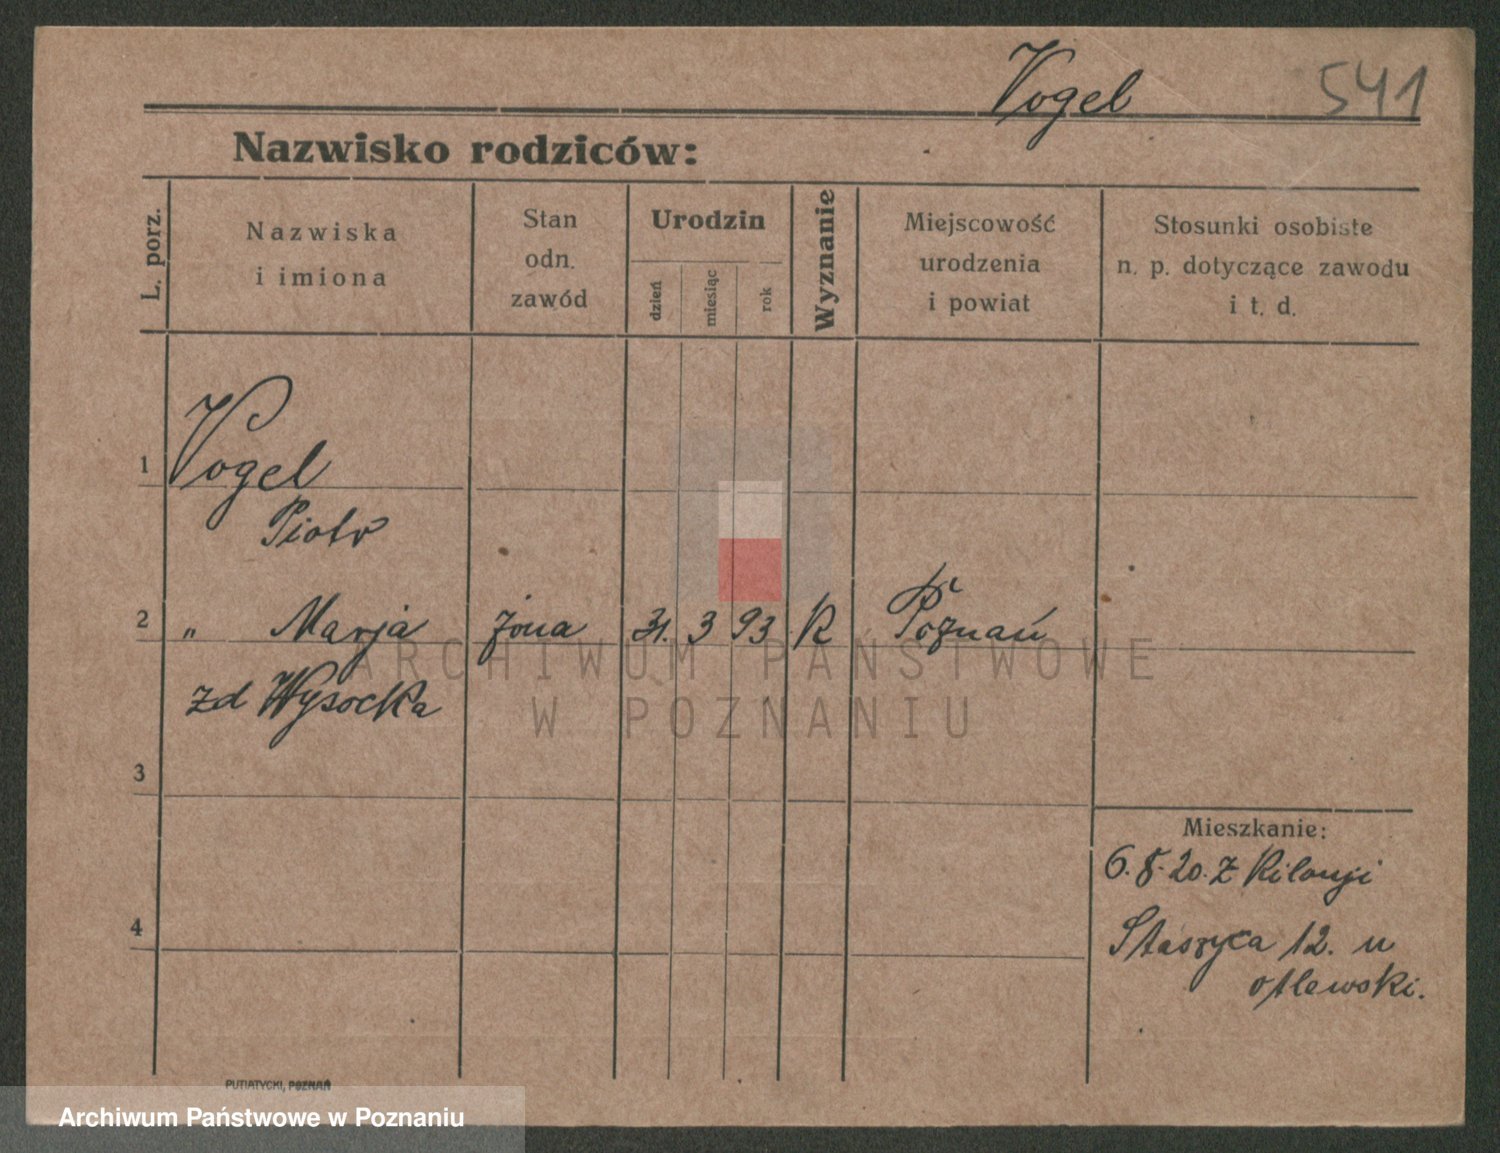 Vogel 541
Nazwisko rodziców:
L. porz.
Nazwiska
i imiona
Stan
odn.
zawód
Urodzin
dzień
miesiąc
rok
Wyznanie
Miejscowość
urodzenia
i powiat
Stosunki osobiste
n. p. dotyczące zawodu
i t. d.
1 Vogel
Piotr
2 " Marja żona 31. 3 93 K Poznań
zd Wysocka
3
4
Mieszkanie:
6. 8. 20. z Kilonji
Staszyca 12. u
PUTIATYCKI, POZNAŃ
ARCHIWUM PAŃSTWOWE
W POZNANIU
Archiwum Państwowe w Poznaniu